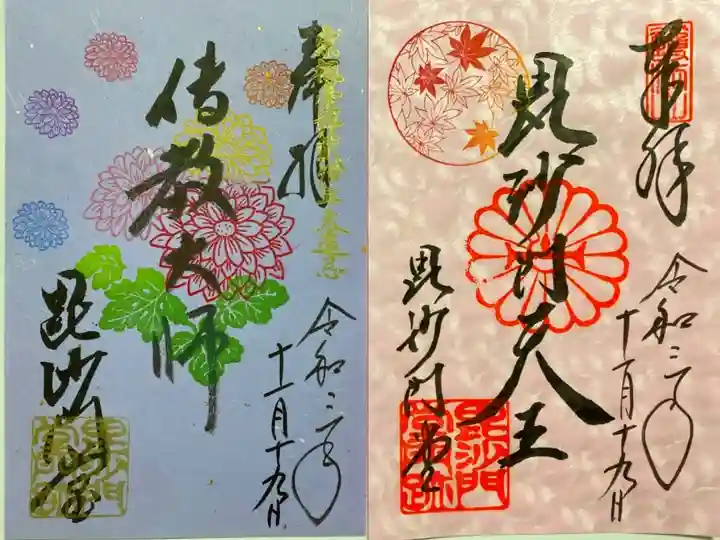 奉拝
令和二年
十一月十九日
傳教大師
毘沙門堂
奉拝
令和二年
十一月十九日
毘沙門天王
毘沙門堂
毘沙門
堂門跡